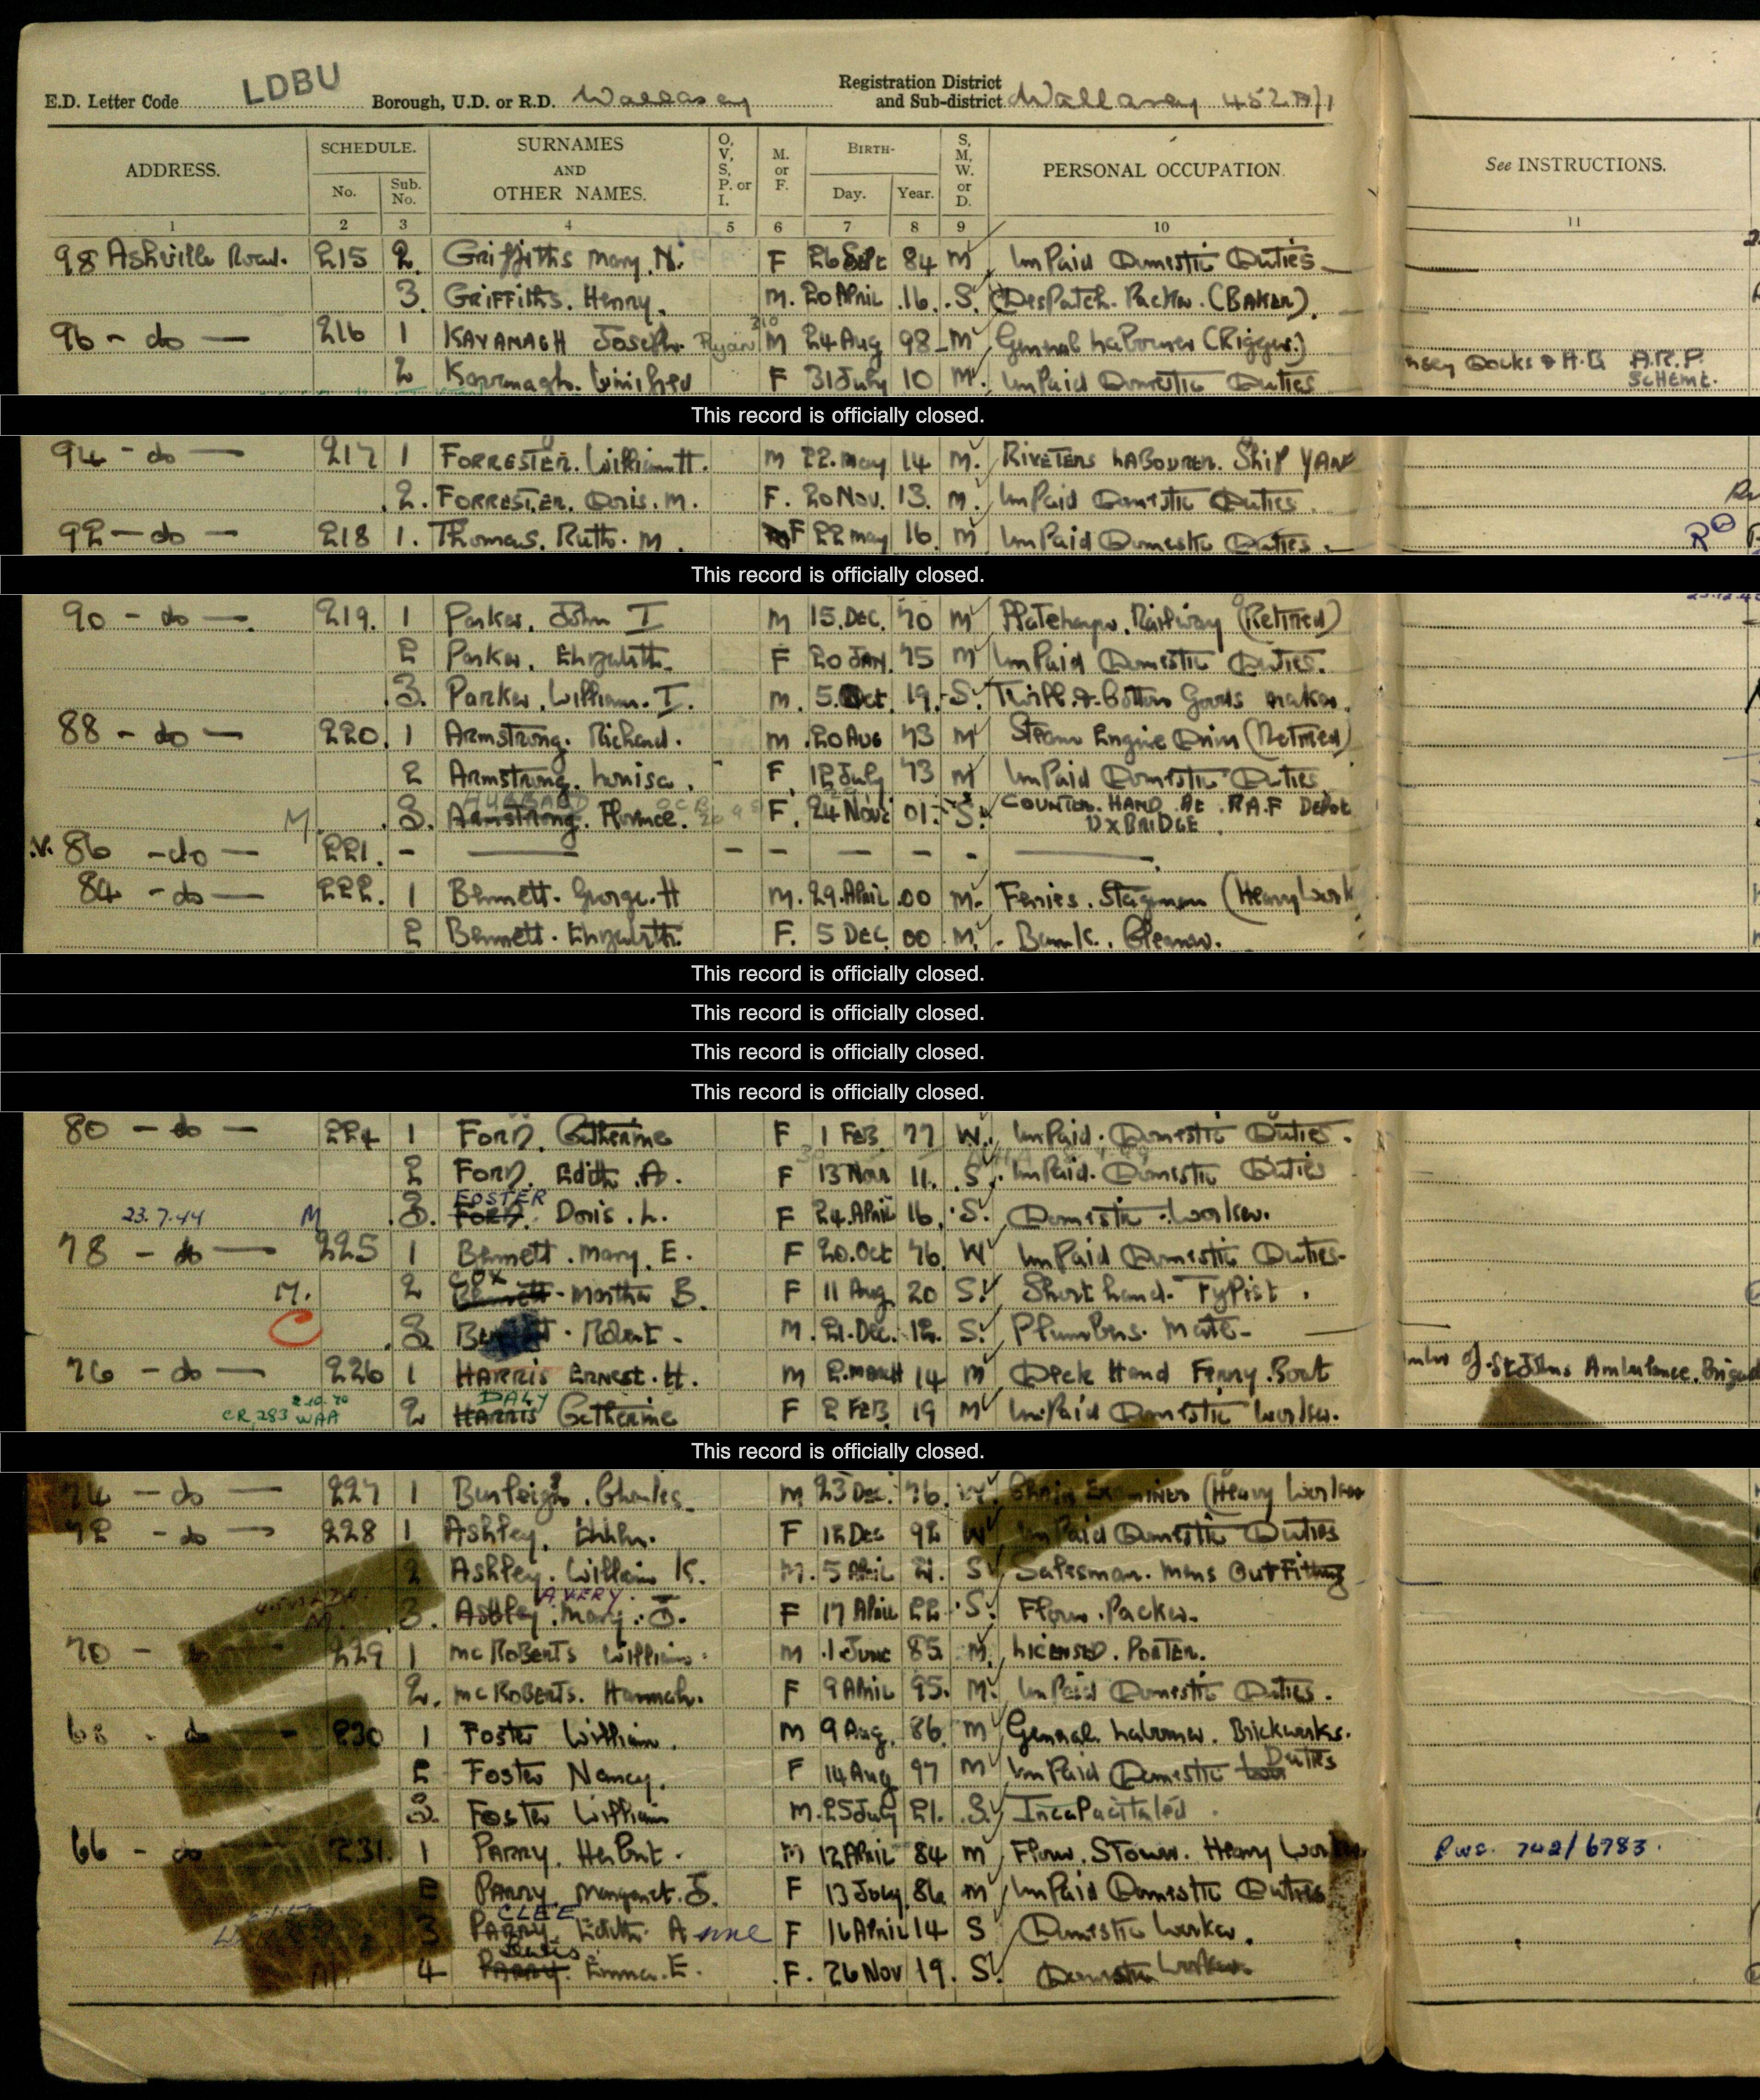 E.D. Letter Code LDBU Borough, U.D. or R.D. Wallasey Registration District and Sub-district Wallasey 452
ADDRESS. SCHEDULE. No. Sub. No. SURNAMES AND OTHER NAMES. O, V, S, P. or I. M. or F. BIRTH- Day. Year. S, M, W. or D. PERSONAL OCCUPATION. See INSTRUCTIONS.
1 2 3 4 5 6 7 8 9 10 11
98 Ashville Road. 215 2. Griffiths Mary. N. F 26 Sept 84 M UnPaid Domestic Duties
3. GRIFFITHS. Henry. M. 20 April .16. S. Despatch. Packer. (BAKER).
96 - do - 216 1 KAVANAGH Joseph. Ryan M 24 Aug 98 M General Labourer (Rigger)
2 Kavanagh. Winifred F 31 July 10 M. UnPaid Domestic Duties Docks & H.B A.R.P. SCHEME.
This record is officially closed.
94 - do - 217 1 FORRESTER. William H. M 22. May 14 M. RIVETERS LABOURER. Ship YARD
2. FORRESTER. Doris. M. F. 20 Nov. 13. M. UnPaid Domestic Duties.
92 - do - 218 1. Thomas. Ruth. M. F 22 May 16. M UnPaid Domestic Duties.
This record is officially closed.
90 - do - 219. 1 Parker. John I M 15. DEC. 70 M Platelayer. Railway (Retired)
2 Parker. Elizabeth. F 20 JAN. 75 M UnPaid Domestic Duties.
3. Parker. William. I. M. 5. Oct. 19. S. Goods maker.
88 - do - 220. 1 Armstrong. Richard. M. 20 AUG 73 M Steam Engine Driver (Retired)
2 Armstrong. Louisa. F. 12 July 73 M UnPaid Domestic Duties
M. 3. HUBBARD Armstrong. Florence. F. 24 Nov. 01. S. COUNTER. HAND. At. R.A.F DEPOT UXBRIDGE.
.V. 86 - do - 221. - - - - - -
84 - do - 222. 1 Bennett. George. H M. 29. April .00 M. Ferries. Stageman (Heavy Work
2 Bennett. Elizabeth. F. 5 DEC. 00 M. Bank. Cleaner.
This record is officially closed.
This record is officially closed.
This record is officially closed.
This record is officially closed.
80 - do - 224 1 FORD. Catherine F 1 FEB 77 W. UnPaid. Domestic Duties.
2 FORD. Edith. A. F 13 Nov 11. S. UnPaid. Domestic Duties
23.7.44 M 3. FOSTER FORD. Doris. L. F 24. April 16. S. Domestic. Worker.
78 - do - 225 1 Bennett. Mary. E. F 20. Oct 76 W UnPaid Domestic Duties.
M. 2 COX Bennett. Martha B. F 11 Aug 20 S. Shorthand. Typist.
C 3. Bennett. Robert. M. 21. Dec. 12. S. Plumbers. Mate.
76 - do - 226 1 HARRIS ERNEST. H. M 2. MARCH 14 M Deck Hand Ferry. Boat of St Johns Ambulance. Brigade
CR. 283 WAA 2.10.40 2. DALY HARRIS Catherine F 2 FEB 19 M UnPaid Domestic Worker.
This record is officially closed.
74 - do - 227 1 Burleigh. Charles. M. 23 Dec. 76. Examiner (Heavy Worker
72 - do - 228 1 Ashley. F 12 Dec 92 W UnPaid Domestic Duties
2 Ashley. William K. M. 5 April 21. S Salesman. Mens Outfitting
M. 3. AVERY. Ashley. Mary. J. F 17 April 22 S. Flour. Packer.
70 - do 229 1 McROBERTS William. M .1 June 85. M. LICENSED. PORTER.
2. McROBERTS. Hannah. F 9 April 95. M. UnPaid Domestic Duties.
68 - do - 230 1 Foster William. M 9 Aug. 86. M General. Labourer. Brickworks.
2 Foster Nancy. F 14 Aug 97 M UnPaid Domestic Duties
3. Foster William M. 25 July 21. S. Incapacitated.
66 - do 231. 1 PARRY. Herbert. M 12 April 84 M Flour. Stower. Heavy Worker Pws. 702/6783.
2 PARRY Margaret. J. F 13 July. 86 M UnPaid Domestic Duties
3 CLEE PARRY. Edith. Anne F 16 April 14 S Domestic Worker.
4 PARRY. Emma. E. F. 26 Nov 19. S. Domestic Worker.